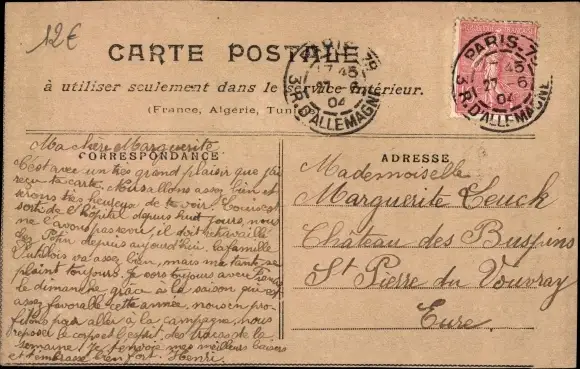 12€
CARTE POSTALE
à utiliser seulement dans le Service Intérieur.
(France, Algérie, Tun
PARIS-79
17 45
27 6
04
3, R. D'ALLEMAGNE
PARIS-79
45
27 6
04
3, R. D'ALLEMAGNE
Ma chère Marguerite
CORRESPONDANCE
C'est avec un très grand plaisir que j'ai
reçu ta carte. Nous allons assez bien et
serons très heureux de te voir. Louis est
sorti de l'hôpital depuis huit jours, nous
ne l'avons pas revu, il doit travailler
chez Potin depuis aujourd'hui. La famille
va assez bien, mais ma tante se
plaint toujours. Je sors toujours avec
le dimanche, grâce à la saison qui est
assez favorable cette année, nous en pro-
fitons par aller à la campagne, nous
reposer le corps et l'esprit des tracas de la
semaine. Je t'envoie mes meilleurs baisers
et t'embrasse bien fort. Henri.
ADRESSE
Mademoiselle
Marguerite Ceuck
Château des Buspins
St Pierre du Vouvray
Eure.